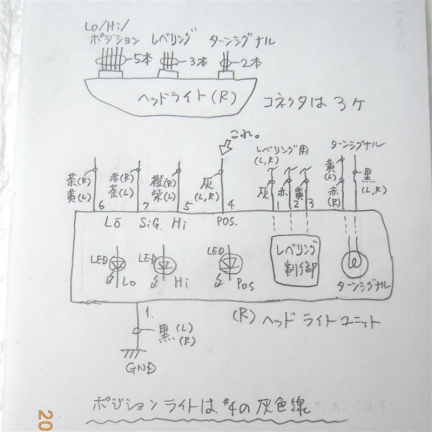 Lo/Hi/
ポジション レベリング ターンシグナル
5本 3本 2本
ヘッドライト(R)
コネクタは3ケ
これ。
レベリング用 (L,R)
ターンシグナル
茶(R) 黄(L) 6
赤(R) 茶(L) 7
橙(R) 紫(L) 5
灰 (L,R) 4
灰 1 赤 2 黄 3
黄(L) 赤(R)
黒 (L,R)
Lo SiG. Hi POS.
LED Lo
LED Hi
LED Pos
レベリング制御
ターンシグナル
1.
黒(L) (R)
GND
(R)ヘッドライトユニット
ポジションライトは、#4の灰色線
20